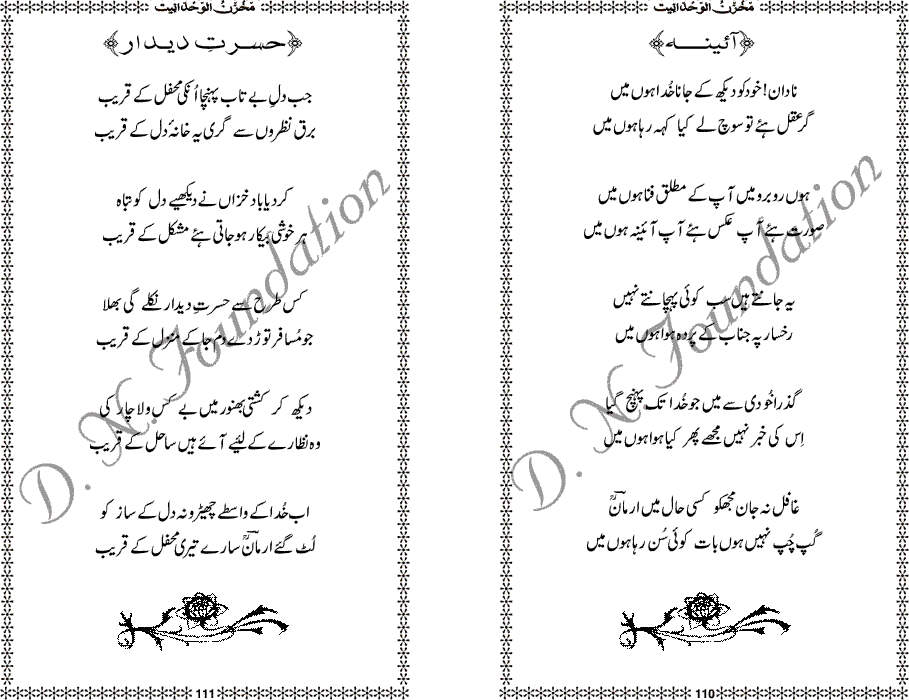 مَخْزَنُ الْوَحْدَانِیت
آئینہ
نادان! خود کو دیکھ کے جانا خُدا ہوں میں
گر عقل ہئے تو سوچ لے کیا کہہ رہا ہوں میں
ہوں روبرو میں آپ کے مطلق فنا ہوں میں
صورت ہئے آپ عکس ہئے آپ آئینہ ہوں میں
یہ جانتے ہیں سب کوئی پہچانتے نہیں
رخسار پہ جناب کے پردہ ہوا ہوں میں
گذرا خُودی سے میں جو خُدا تک پہنچ گیا
اِس کی خبر نہیں مجھے پھر کیا ہوا ہوں میں
غافل نہ جان مجھکو کسی حال میں ارمانؔ
گُپ چُپ نہیں ہوں بات کوئی سُن رہا ہوں میں
110
D. N. Foundation
مَخْزَنُ الْوَحْدَانِیت
حسرتِ دیدار
جب دلِ بے تاب پہنچا اُنکی محفل کے قریب
برق نظروں سے گری یہ خانۂ دل کے قریب
کر دیا باد خزاں نے دیکھیے دل کو تباہ
ہر خوشی بیکار ہو جاتی ہئے مشکل کے قریب
کس طرح سے حسرتِ دیدار نکلے گی بھلا
جو مُسافر توڑ دے دم جا کے منزل کے قریب
دیکھ کر کشتی بھنور میں بے کس و لاچار کی
وہ نظارے کے لئیے آئے ہیں ساحل کے قریب
اب خُدا کے واسطے چھیڑو نہ دل کے ساز کو
لُٹ گئے ارمانؔ سارے تیری محفل کے قریب
111
D. N. Foundation